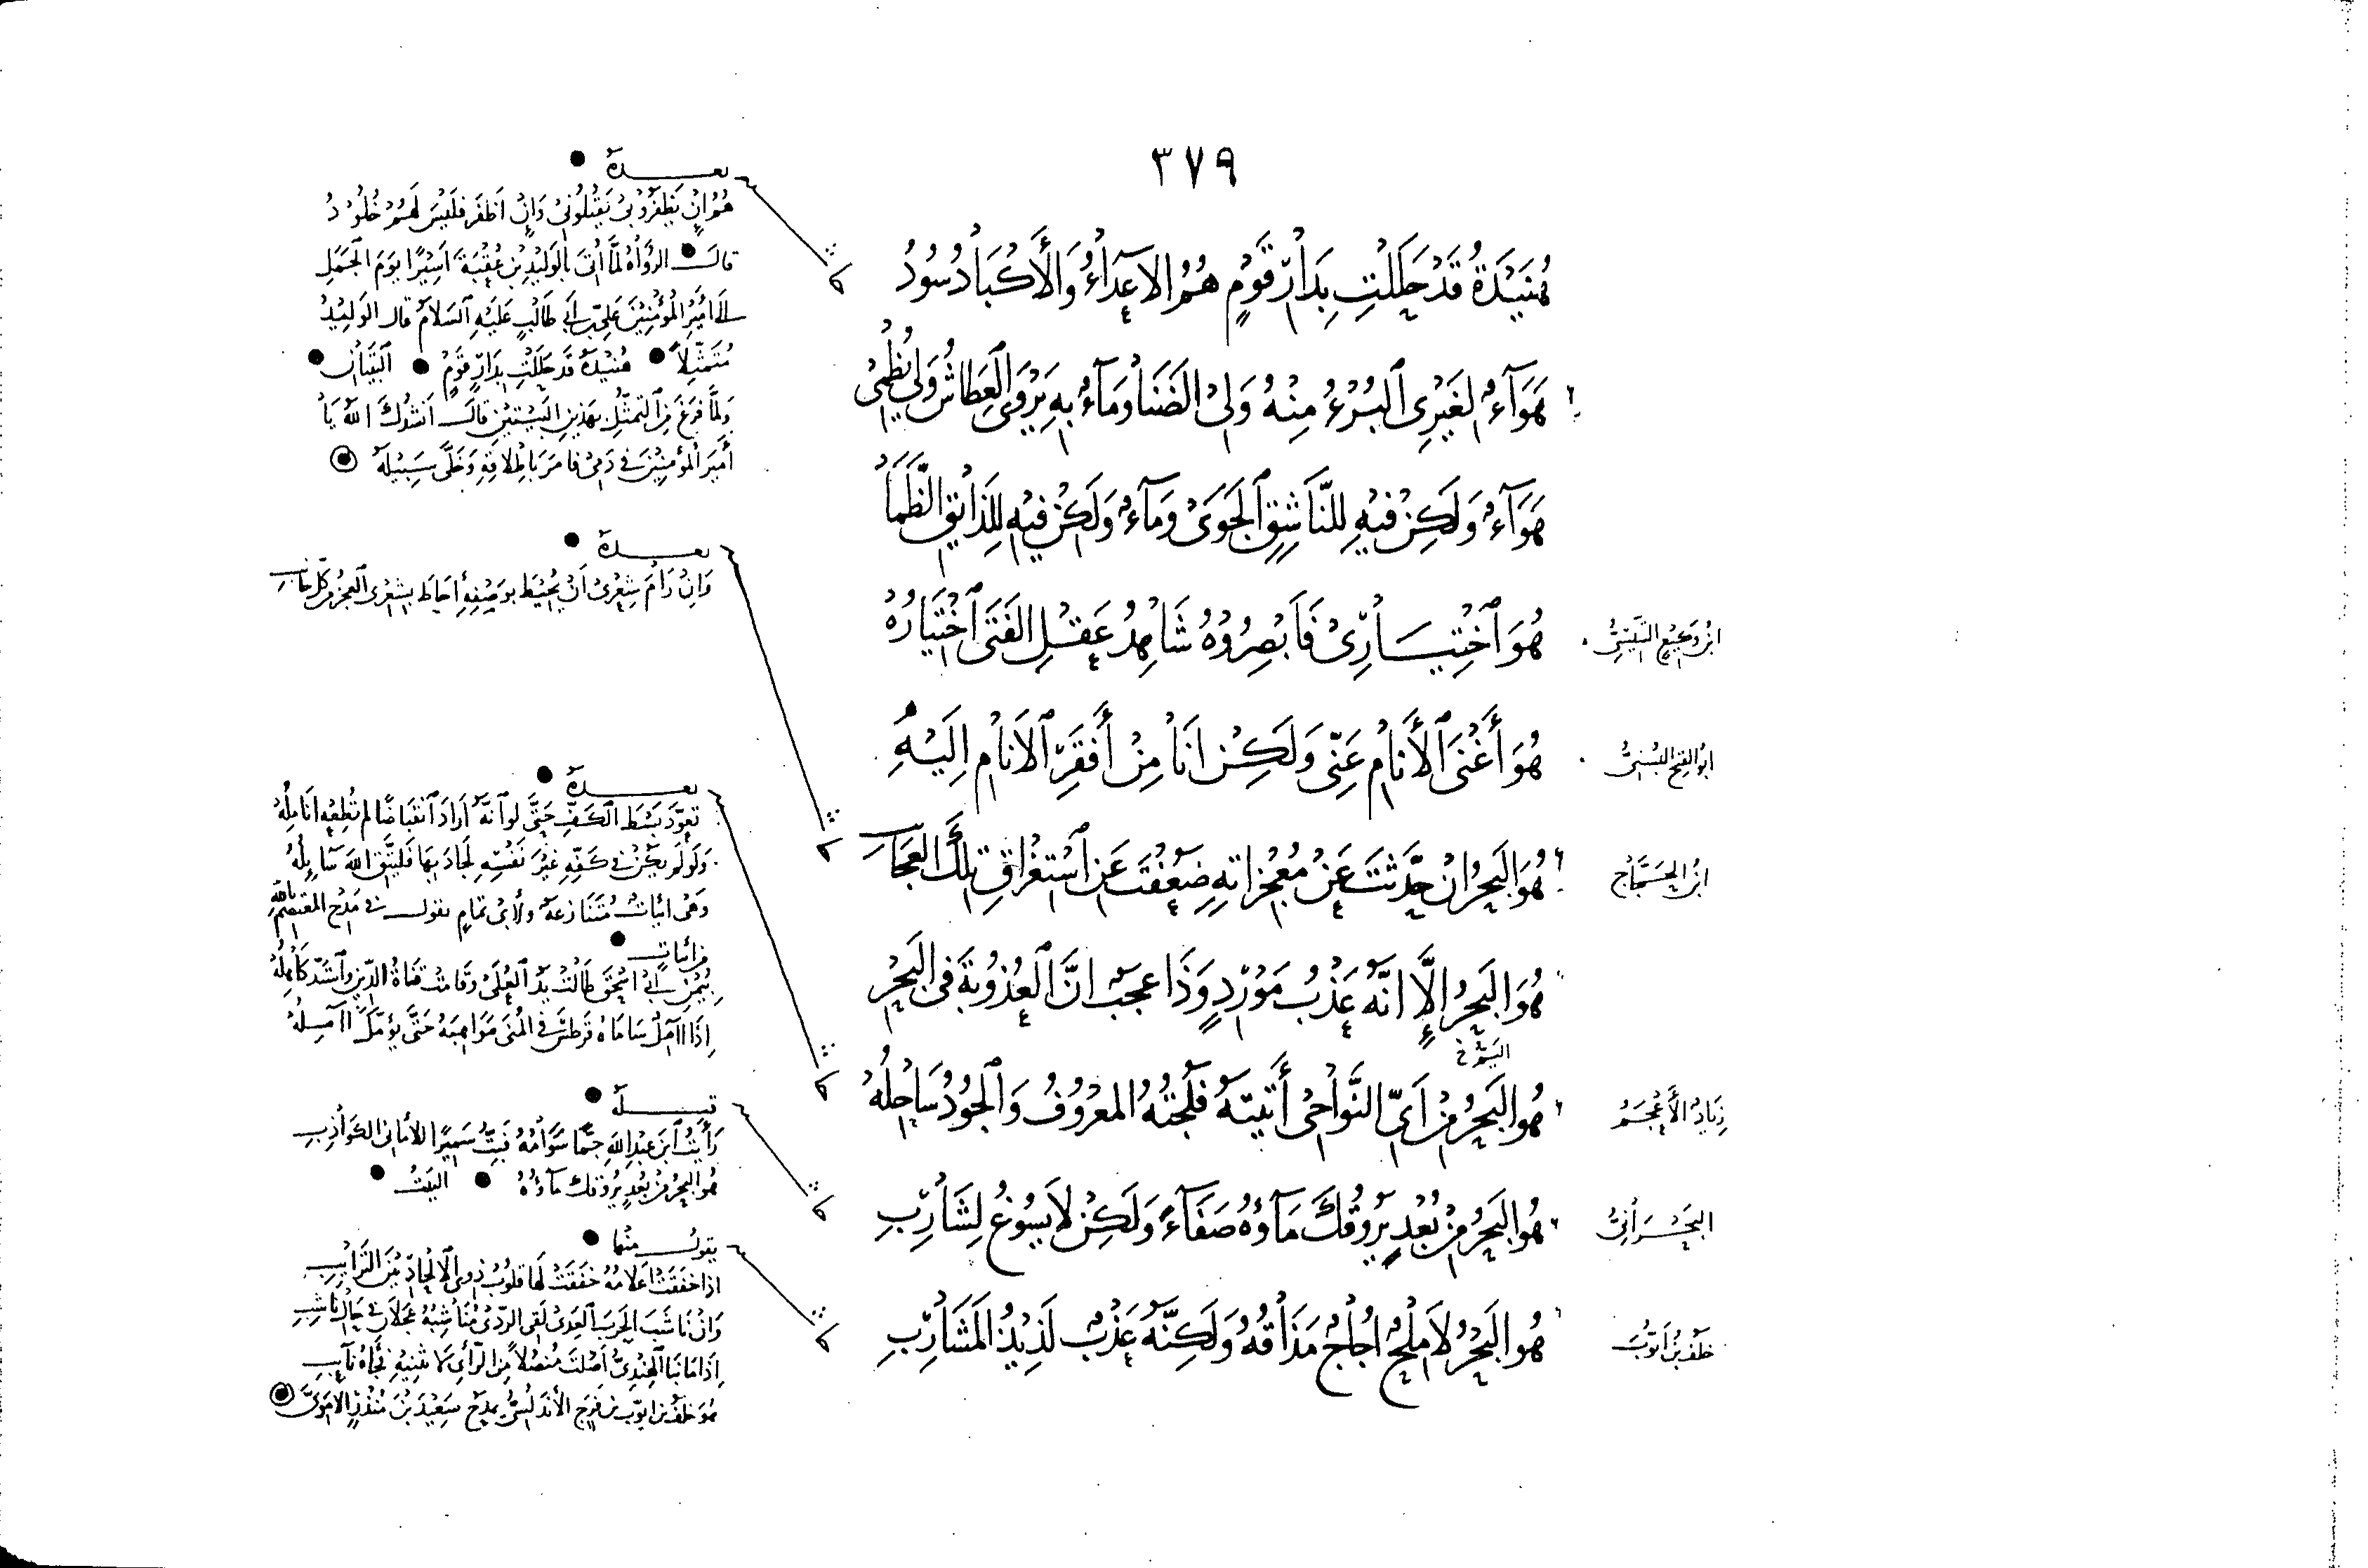 ٣٧٩
هُنَيْدَةُ قَدْ حَلَلْتِ بِدَارِ قَوْمٍ هُمُ الأَعْدَاءُ وَالأَكْبَادُ سُودُ
هَوَآءٌ لِغَيْرِي ٱلبُرْءُ مِنْهُ وَلِيْ الضَنَا وَمَآءٌ بِهِ يَرْوَى العِطَاشُ وَلِي يُظْمِيْ
هَوَآءٌ وَلَكِنْ فِيْهِ لِلنَّاشِقِ ٱلجَوَىْ وَمَآءٌ وَلَكِنْ فِيْهِ لِلذَائِقِ الظَّمَأُ
ابْنُ وَكِيْعٍ التِّنِّيْسِيُّ
هُوَ ٱخْتِيَارِيْ فَأَبْصِرُوْهُ شَاهِدُ عَقْلِ الفَتَى ٱخْتِيَارُهْ
ابُو الفَتْحِ البُسْتِيُّ
هُوَ أَغْنَى ٱلأَنَامِ عَنِّي وَلَكِنْ أَنَا مِنْ أَفْقَرِ ٱلأَنَامِ إِلَيْهِ
ابْنُ الحَجَّاجِ
هُوَ البَحْرُ إِنْ حَدَّثْتَ عَنْ مُعْجِزَاتِهِ ضَعُفْتَ عَنِ ٱسْتِغْرَاقِ تِلْكَ العَجَائِبِ
هُوَ البَحْرُ إِلَّا أَنَّهُ عَذْبُ مَوْرِدٍ وَذَا عَجَبٌ أَنَّ ٱلعُذُوْبَةَ فِي البَحْرِ
اليَمُّ خ
زِيَادُ الأَعْجَمُ
هُوَ البَحْرُ مِنْ أَيِّ النَّوَاحِيْ أَتَيْتَهُ فَلُجَّتُهُ المَعْرُوْفُ وَٱلجُوْدُ سَاحِلُهُ
البَحْرَانِيُّ
هُوَ البَحْرُ مِنْ بُعْدٍ يَرُوْقُكَ مَآؤُهُ صَفَآءً وَلَكِنْ لَا يَسُوْغُ لِشَارِبِ
خَلَفُ بنُ أَيُّوْبَ
هُوَ البَحْرُ لَا مِلْحٌ أُجَاجٌ مَذَاقُهُ وَلَكِنَّهُ عَذْبٌ لَذِيْذُ المَشَارِبِ
بَعْدَهُ
هُمُ إِنْ يَظْفَرُوْا بِيْ يَقْتُلُوْنِيْ وَإِنْ أَظْفَرْ فَلَيْسَ لَهُمْ خُلُوْدُ
قالَ الرُوَاةُ لَمَّا أُتِيَ بِالوَلِيْدِ بْنِ عُقْبَةَ أَسِيْرًا يَوْمَ الجَمَلِ
إلى أَمِيْرِ المُؤْمِنِيْنَ عَلِيِّ بن أَبِي طَالِبٍ عَلَيْهِ ٱلسَلَامُ قال الوَلِيْدُ
مُتَمَثِّلاً هُنَيْدَةُ قَدْ حَلَلْتِ بِدَارِ قَوْمٍ البَيْتَانِ
وَلَمَّا فَرَغَ مِنَ ٱلتَمَثُّلِ بِهَذَيْنِ البَيْتَيْنِ قالَ أَنْشُدُكَ اللهَ يَا
أَمِيْرَ المُؤْمِنِيْنَ فِي دَمِيْ فَأَمَرَ بِإِطْلَاقِهِ وَخَلَّى سَبِيْلَهُ
بَعْدَهُ
وَإِنْ رَامَ شِعْرِيْ أَنْ يُحِيْطَ بِوَصْفِهِ أَحَاطَ بِشِعْرِي العَجْزُ مِنْ كُلِّ جَانِبِ
بَعْدَهُ
تَعَوَّدَ بَسْطَ ٱلكَفِّ حَتَّى لَو ٱنَّهُ أَرَادَ ٱنْقِبَاضًا لَمْ تُطِعْهُ أَنَامِلُهُ
وَلَو لَمْ يَكُنْ فِي كَفِّهِ غَيْرُ نَفْسِهِ لَجَادَ بِهَا فَلْيَتَّقِ اللهَ سَائِلُهُ
وَهِيَ أَبْيَاتٌ مُتَنَازَعَةٌ ولِأَبِي تَمَّامٍ يقولُ فِي مَدْحِ المُعْتَصِمِ بالله
مِنْ أَبْيَاتٍ
بِيُمْنِ أَبِيْ إِسْحَقَ طَالَتْ يَدُ العُلَىْ وَقَامَتْ قَنَاةُ الدِّيْنِ وَٱشْتَدَّ كَاهِلُهُ
إِذَا آمِلٌ سَامَاهُ قَرْطَسَ فِي المُنَى مَوَاهِبَهُ حَتَّى يُؤَمِّلَ آمِلُهُ
قَبْلَهُ
رَأَيْتُ ٱبْنَ عَبْدِ اللهِ جَمًّا سَوَامُهُ فَبِتُّ سَمِيْرًا لِلأَمَانِي الكَوَاذِبِ
هُوَ البَحْرُ مِنْ بُعْدٍ يَرُوْقُكَ مَآؤُهُ البَيْتُ
يَقُولُ مِنْهَا
إِذَا خَفَقَتْ أَعْلَامُهُ خَفَقَتْ لَهَا قُلُوْبُ ذَوِي ٱلإِلْحَادِ بَيْنَ التَرَائِبِ
وَإِنْ نَاشَبَ الحَرْبَ العِدَىْ لَقِيَ الرَدَىْ مُنَاشِبُهُ
إِذَا مَا نَبَا الهِنْدِيُّ أَصْلَتَ مُنْصُلاً مِنَ الرَأْيِ
هُوَ خَلَفُ بن أَيُّوْبَ بن فَرَجٍ الأَنْدَلُسِيُّ يَمْدَحُ سَعِيْدَ بْنَ مُنْذِرٍ الأُمَوِيَّ